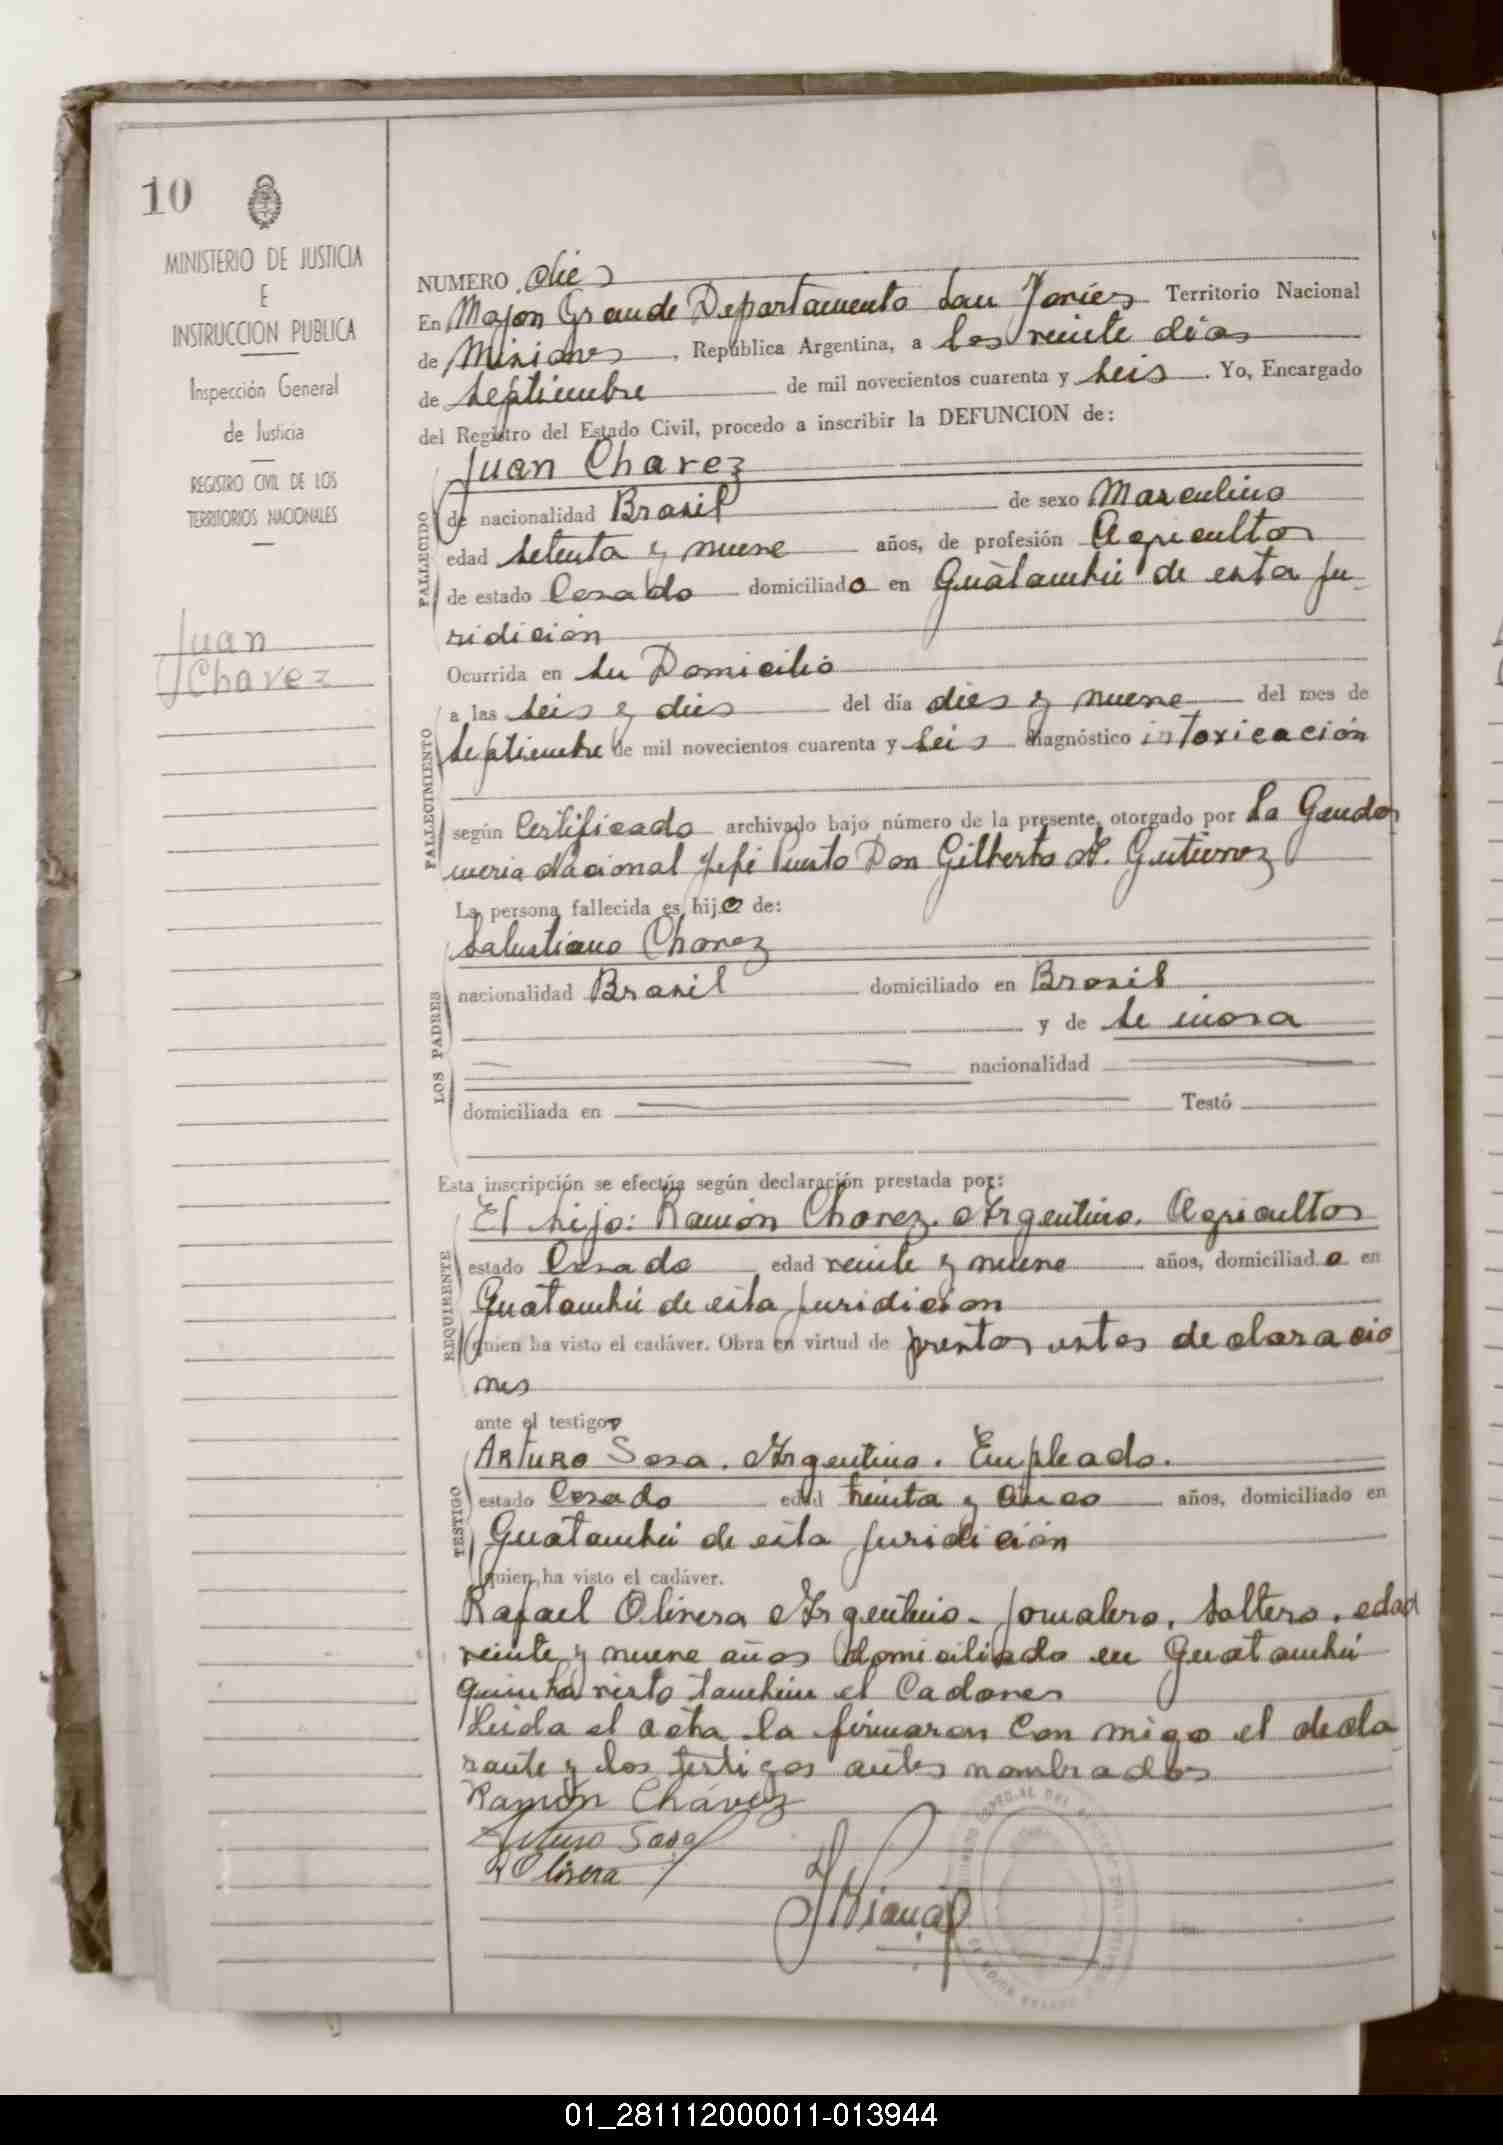 10
MINISTERIO DE JUSTICIA
E
INSTRUCCION PUBLICA
Inspección General
de Justicia
REGISTRO CIVIL DE LOS
TERRITORIOS NACIONALES
Juan
Chavez
NUMERO dies
En Mojon Grande Departamento San Javier Territorio Nacional
de Misiones, República Argentina, a los veinte dias
de Septiembre de mil novecientos cuarenta y seis. Yo, Encargado
del Registro del Estado Civil, procedo a inscribir la DEFUNCION de:
FALLECIDO
Juan Chavez
de nacionalidad Brasil de sexo Masculino
edad setenta y nueve años, de profesión Agricultor
de estado Casado domiciliado en Guatambú de esta ju-
ridición
FALLECIMIENTO
Ocurrida en su Domicilio
a las seis y dies del día dies y nueve del mes de
Septiembre de mil novecientos cuarenta y seis diagnóstico intoxicación
según Certificado archivado bajo número de la presente, otorgado por La Gendar
meria Nacional Jefe Puesto Don Gilberto Gutierrez
La persona fallecida es hijo de:
LOS PADRES
Salustiano Chavez
nacionalidad Brasil domiciliado en Brasil
y de se inora
nacionalidad
domiciliada en Testó
Esta inscripción se efectúa según declaración prestada por:
REQUIRENTE
El hijo: Ramón Chavez. Argentino. Agricultor
estado Casado edad veinte y nueve años, domiciliado en
Guatambú de esta juridicion
quien ha visto el cadáver. Obra en virtud de prestar estas declaracio
nes
ante el testigo
TESTIGO
Arturo Sosa. Argentino. Empleado.
estado Casado edad treinta y cinco años, domiciliado en
Guatambú de esta juridición
quien ha visto el cadáver.
Rafael Olivera Argentino - Jornalero, Saltero, edad
veinte y nueve años domiciliado en Guatambú
quien ha visto tambien el Cadaver
Leida el acta la firmaron con migo el decla
rante y los testigos antes nombrados
Ramón Chávez
Arturo Sosa
R Olivera
01_281112000011-013944